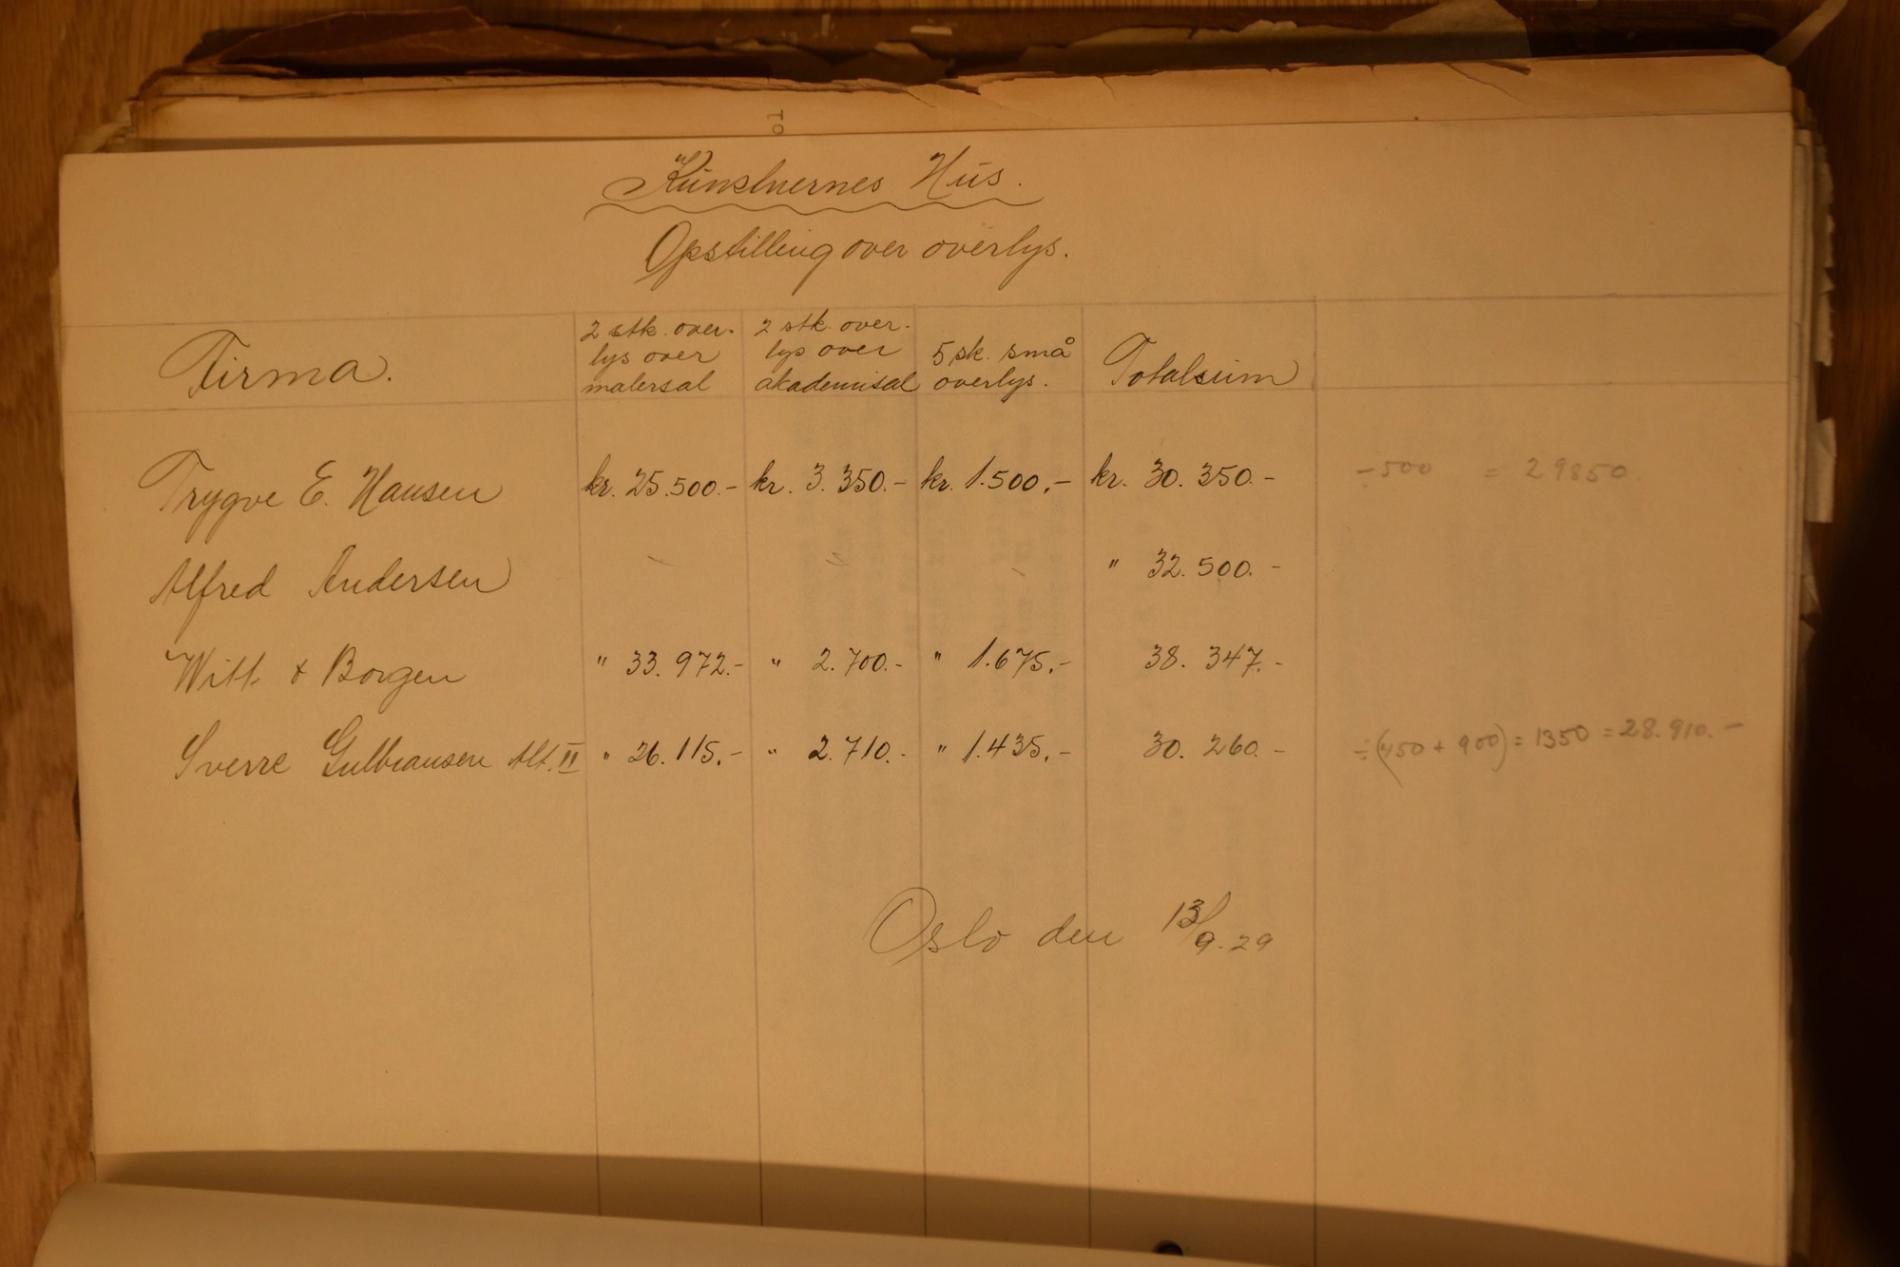 "Kunstnernes Hus.
Opstilling over overlys.
Firma.
2 stk. over-
lys over
malersal
2 stk. over-
lys over
akademisal
5 stk. små
overlys.
Totalsum
Trygve E. Hansen kr. 25.500.- kr. 3.350.- kr. 1.500.- kr. 30.350.- ÷500 = 29850
Alfred Andersen - " - " 32.500.-
Witt & Borgen " 33.972.- " 2.700.- " 1.675.- 38.347.-
Sverre Gulbransen Alt. II " 26.115.- " 2.710.- " 1.435.- 30.260.- ÷(450 + 900) = 1350 = 28.910.-
Oslo den 13/9.29